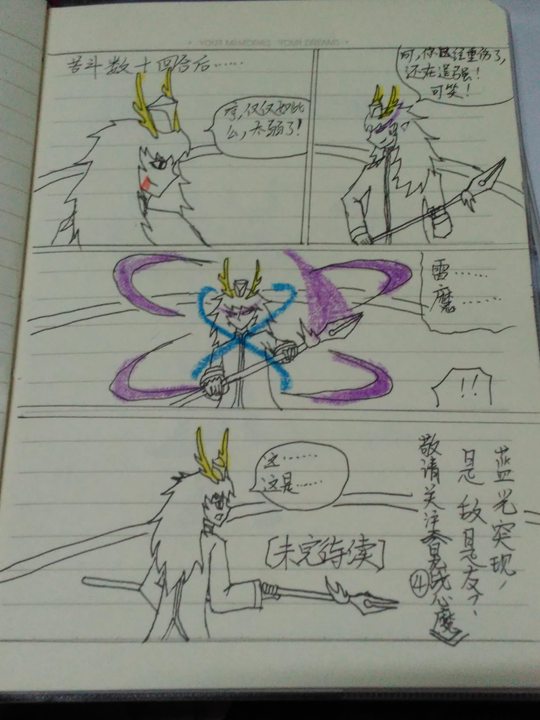 苦斗数十四合后……
哼,仅仅如此
么,太弱了!
呵,你已经重伤了,
还在逞强!
可笑!
雷……
魔……
!!
这……
这是……
[未完待续]
蓝光突现,
是敌是友?
敬请关注
心魔
④